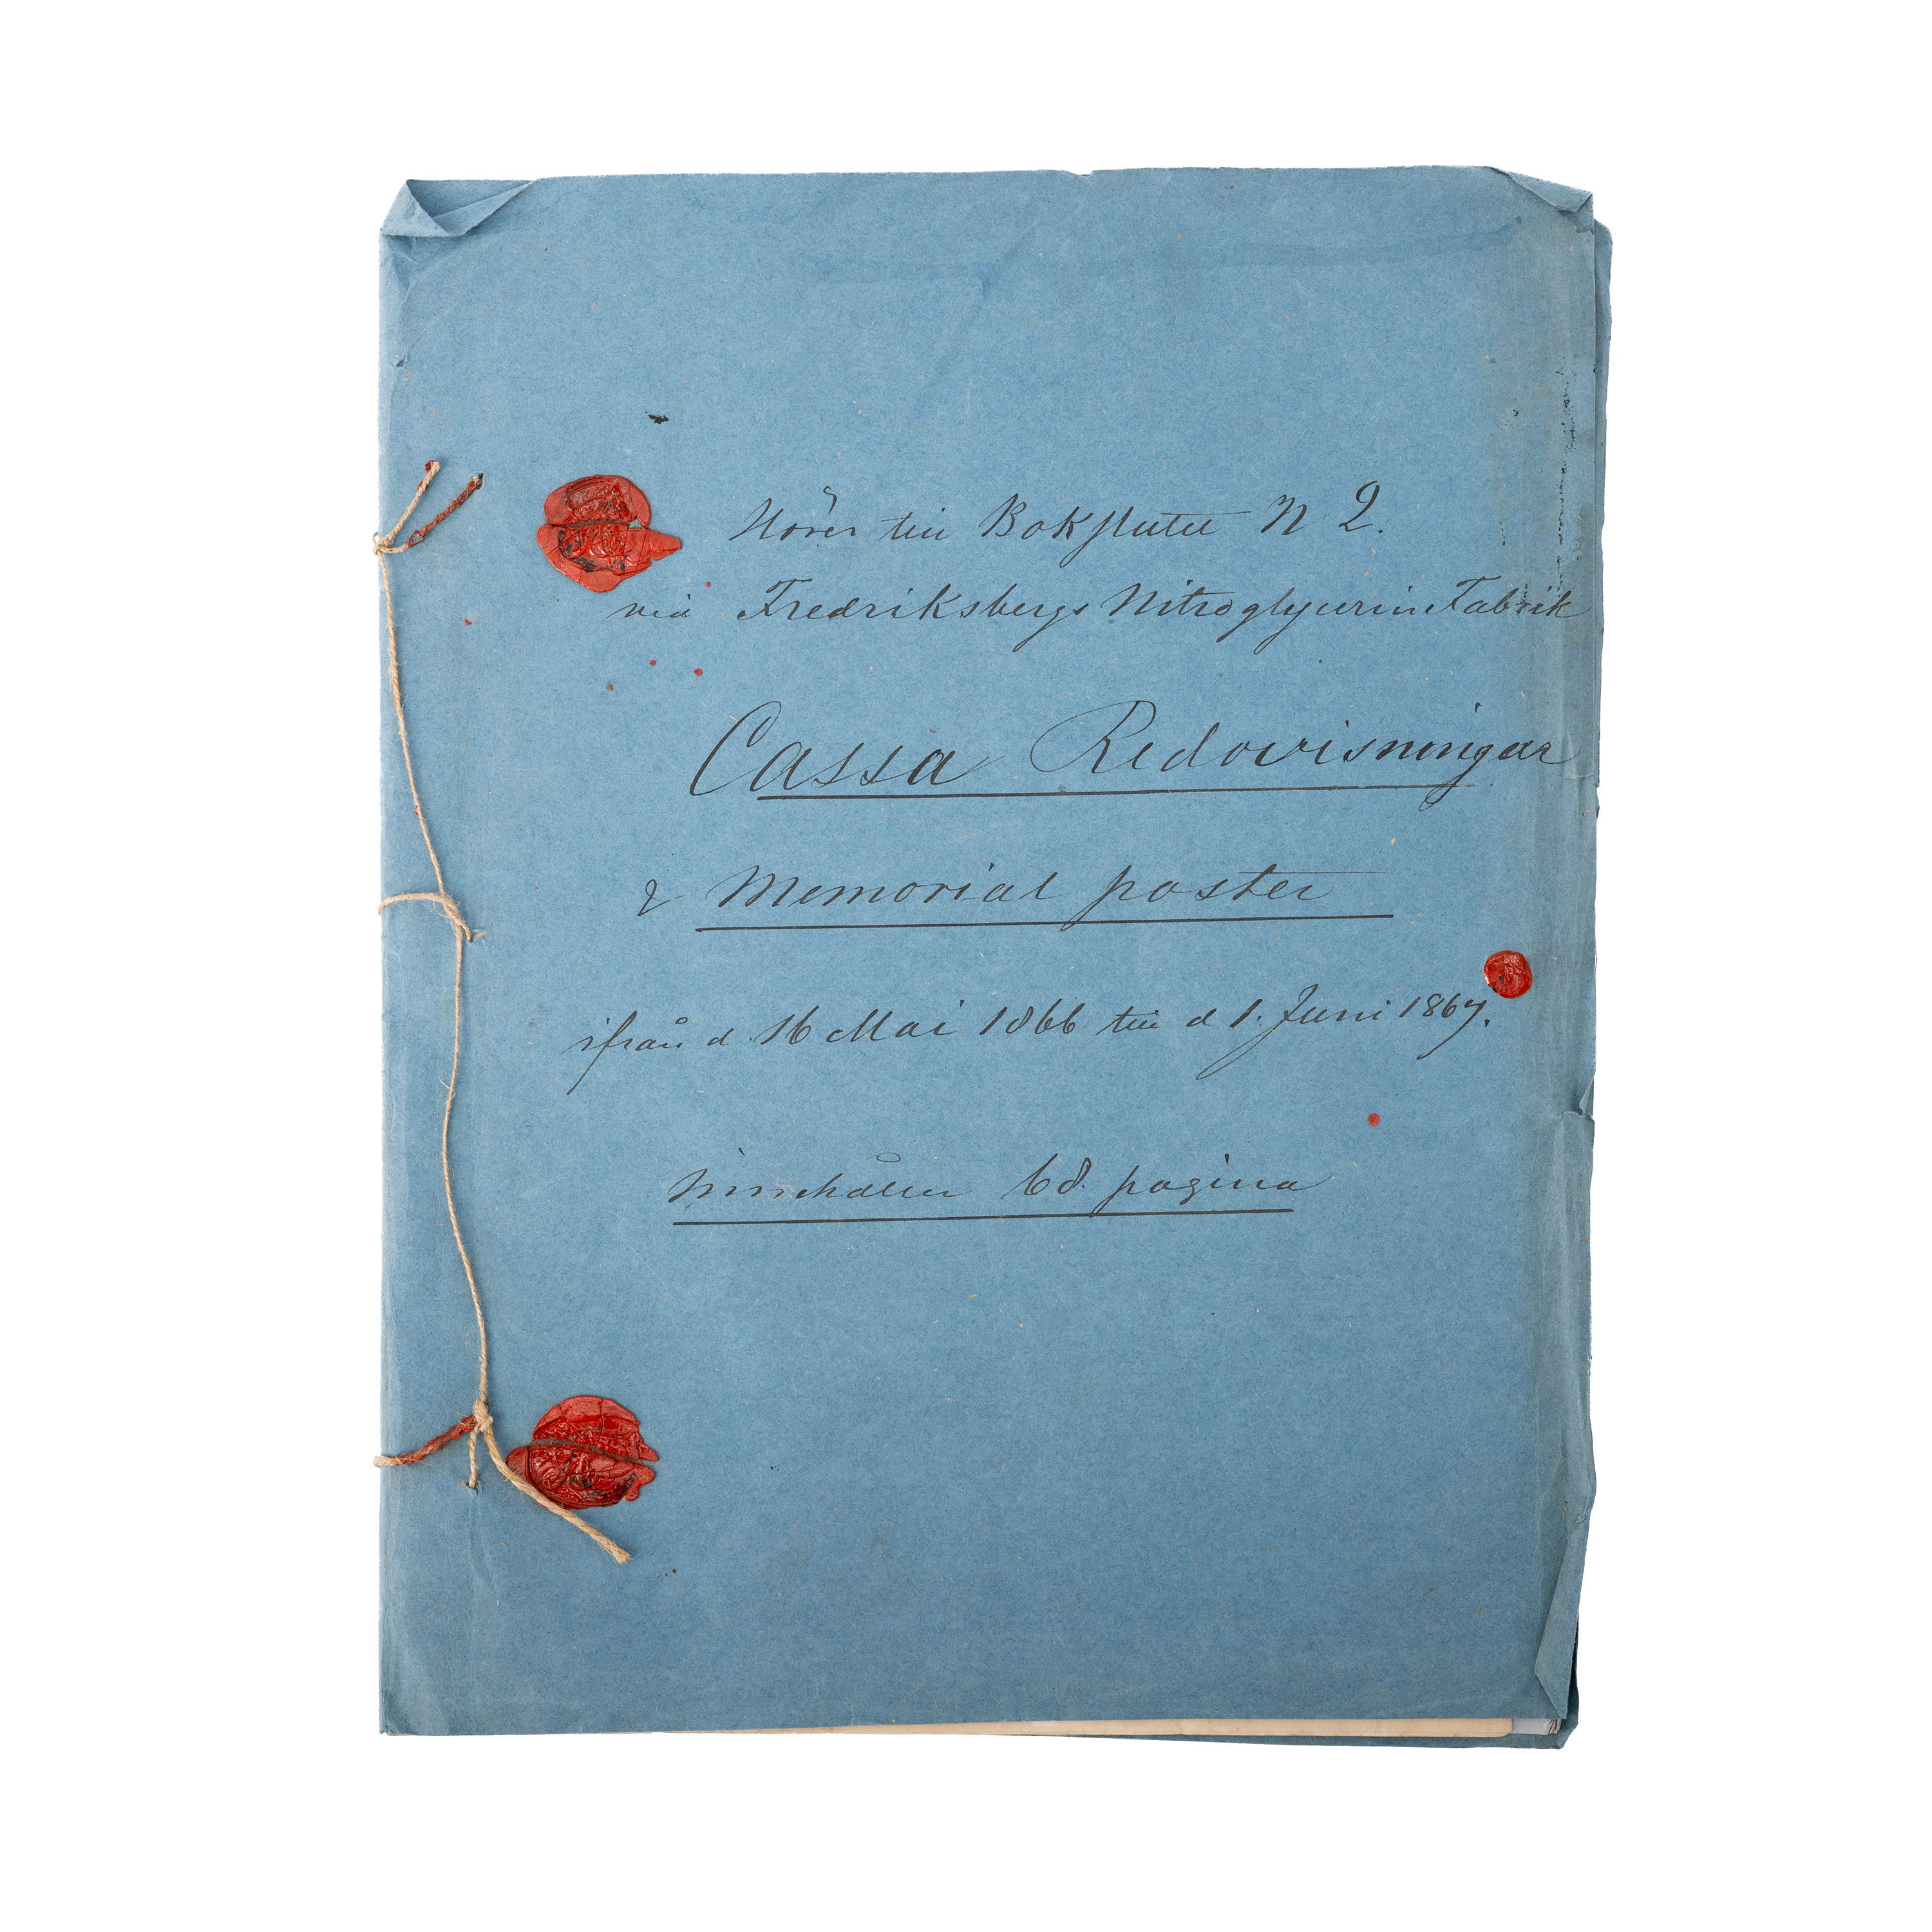 Hörer till Bokslutet N 2.
vid Fredriksbergs Nitroglycerin Fabrik
Cassa Redovisningar
& Memorial poster
ifrån d. 16 Mai 1866 till d 1. Juni 1867.
innehåller 68. pagina